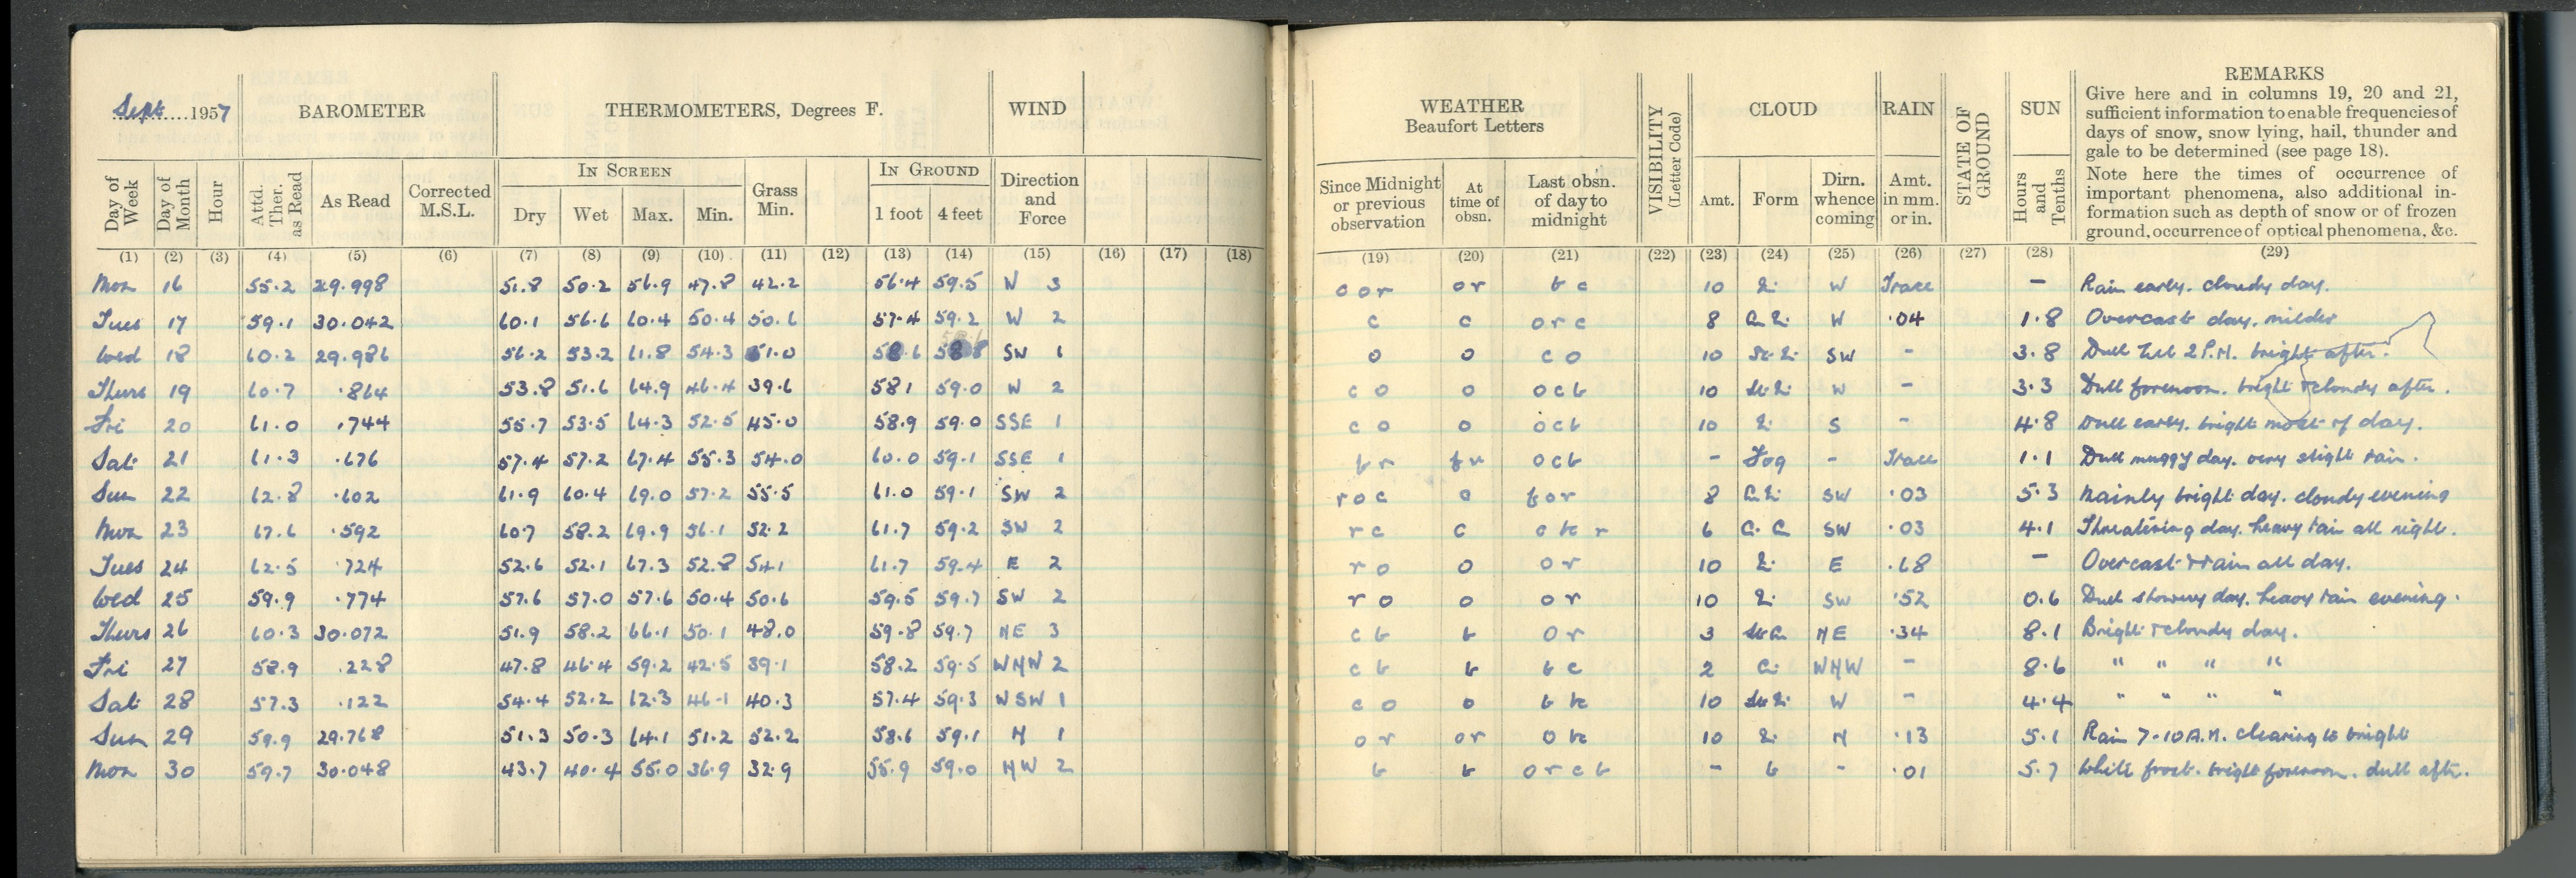 Sept 1957
BAROMETER
THERMOMETERS, Degrees F.
WIND
In Screen
In Ground
Day of Week
Day of Month
Hour
Attd. Ther. as Read
As Read
Corrected M.S.L.
Dry
Wet
Max.
Min.
Grass Min.
1 foot
4 feet
Direction and Force
(1) (2) (3) (4) (5) (6) (7) (8) (9) (10) (11) (12) (13) (14) (15) (16) (17) (18)
Mon 16 55.2 29.998 51.8 50.2 56.9 47.8 42.2 56.4 59.5 W 3
Tues 17 59.1 30.042 60.1 56.6 60.4 50.4 50.6 57.4 59.2 W 2
Wed 18 60.2 29.986 56.2 53.2 61.8 54.3 51.0 58.6 58.8 SW 1
Thurs 19 60.7 .864 53.8 51.6 64.9 46.4 39.6 58 1 59.0 W 2
Fri 20 61.0 .744 55.7 53.5 64.3 52.5 45.0 58.9 59.0 SSE 1
Sat 21 61.3 .676 57.4 57.2 67.4 55.3 54.0 60.0 59.1 SSE 1
Sun 22 62.8 .602 61.9 60.4 69.0 57.2 55.5 61.0 59.1 SW 2
Mon 23 67.6 .592 60.7 58.2 69.9 56.1 52.2 61.7 59.2 SW 2
Tues 24 62.5 .724 52.6 52.1 67.3 52.8 54.1 61.7 59.4 E 2
Wed 25 59.9 .774 57.6 57.0 57.6 50.4 50.6 59.5 59.7 SW 2
Thurs 26 60.3 30.072 51.9 58.2 66.1 50.1 48.0 59.8 59.7 NE 3
Fri 27 58.9 .228 47.8 46.4 59.2 42.5 39.1 58.2 59.5 WNW 2
Sat 28 57.3 .122 54.4 52.2 62.3 46.1 40.3 57.4 59.3 WSW 1
Sun 29 59.9 29.768 51.3 50.3 64.1 51.2 52.2 58.6 59.1 N 1
Mon 30 59.7 30.048 43.7 40.4 55.0 36.9 32.9 55.9 59.0 NW 2
WEATHER
Beaufort Letters
VISIBILITY (Letter Code)
CLOUD
RAIN
STATE OF GROUND
SUN
REMARKS
Give here and in columns 19, 20 and 21,
sufficient information to enable frequencies of
days of snow, snow lying, hail, thunder and
gale to be determined (see page 18).
Note here the times of occurrence of
important phenomena, also additional in-
formation such as depth of snow or of frozen
ground, occurrence of optical phenomena, &c.
Since Midnight or previous observation
At time of obsn.
Last obsn. of day to midnight
Amt.
Form
Dirn. whence coming
Amt. in mm. or in.
Hours and Tenths
(19) (20) (21) (22) (23) (24) (25) (26) (27) (28) (29)
o o r o r b c 10 W Trace - Rain early. cloudy day.
c c o r c 8 W .04 1.8 Overcast day. milder
o o c o 10 SW - 3.8 Dull till 2 P.M. bright after.
c o o o c b 10 W - 3.3 Dull forenoon. bright & cloudy after.
c o o o c b 10 S - 4.8 Dull early. bright most of day.
f r f r o c b - Fog - Trace 1.1 Dull muggy day. very slight rain.
r o c o b o r 8 SW .03 5.3 Mainly bright day. cloudy evening
r c c 6 SW .03 4.1 Threatening day. heavy rain all night.
r o o o r 10 E .68 - Overcast & rain all day.
r o o o r 10 SW .52 0.6 Dull showery day. heavy rain evening.
c b b o r 3 NE .34 8.1 Bright & cloudy day.
c b b b c 2 WNW - 8.6 " " " "
c o o 10 W - 4.4 " " " "
o r o r 10 N .13 5.1 Rain 7-10 A.M. clearing to bright
b b o r c b - b - .01 5.7 White frost. bright forenoon. dull after.